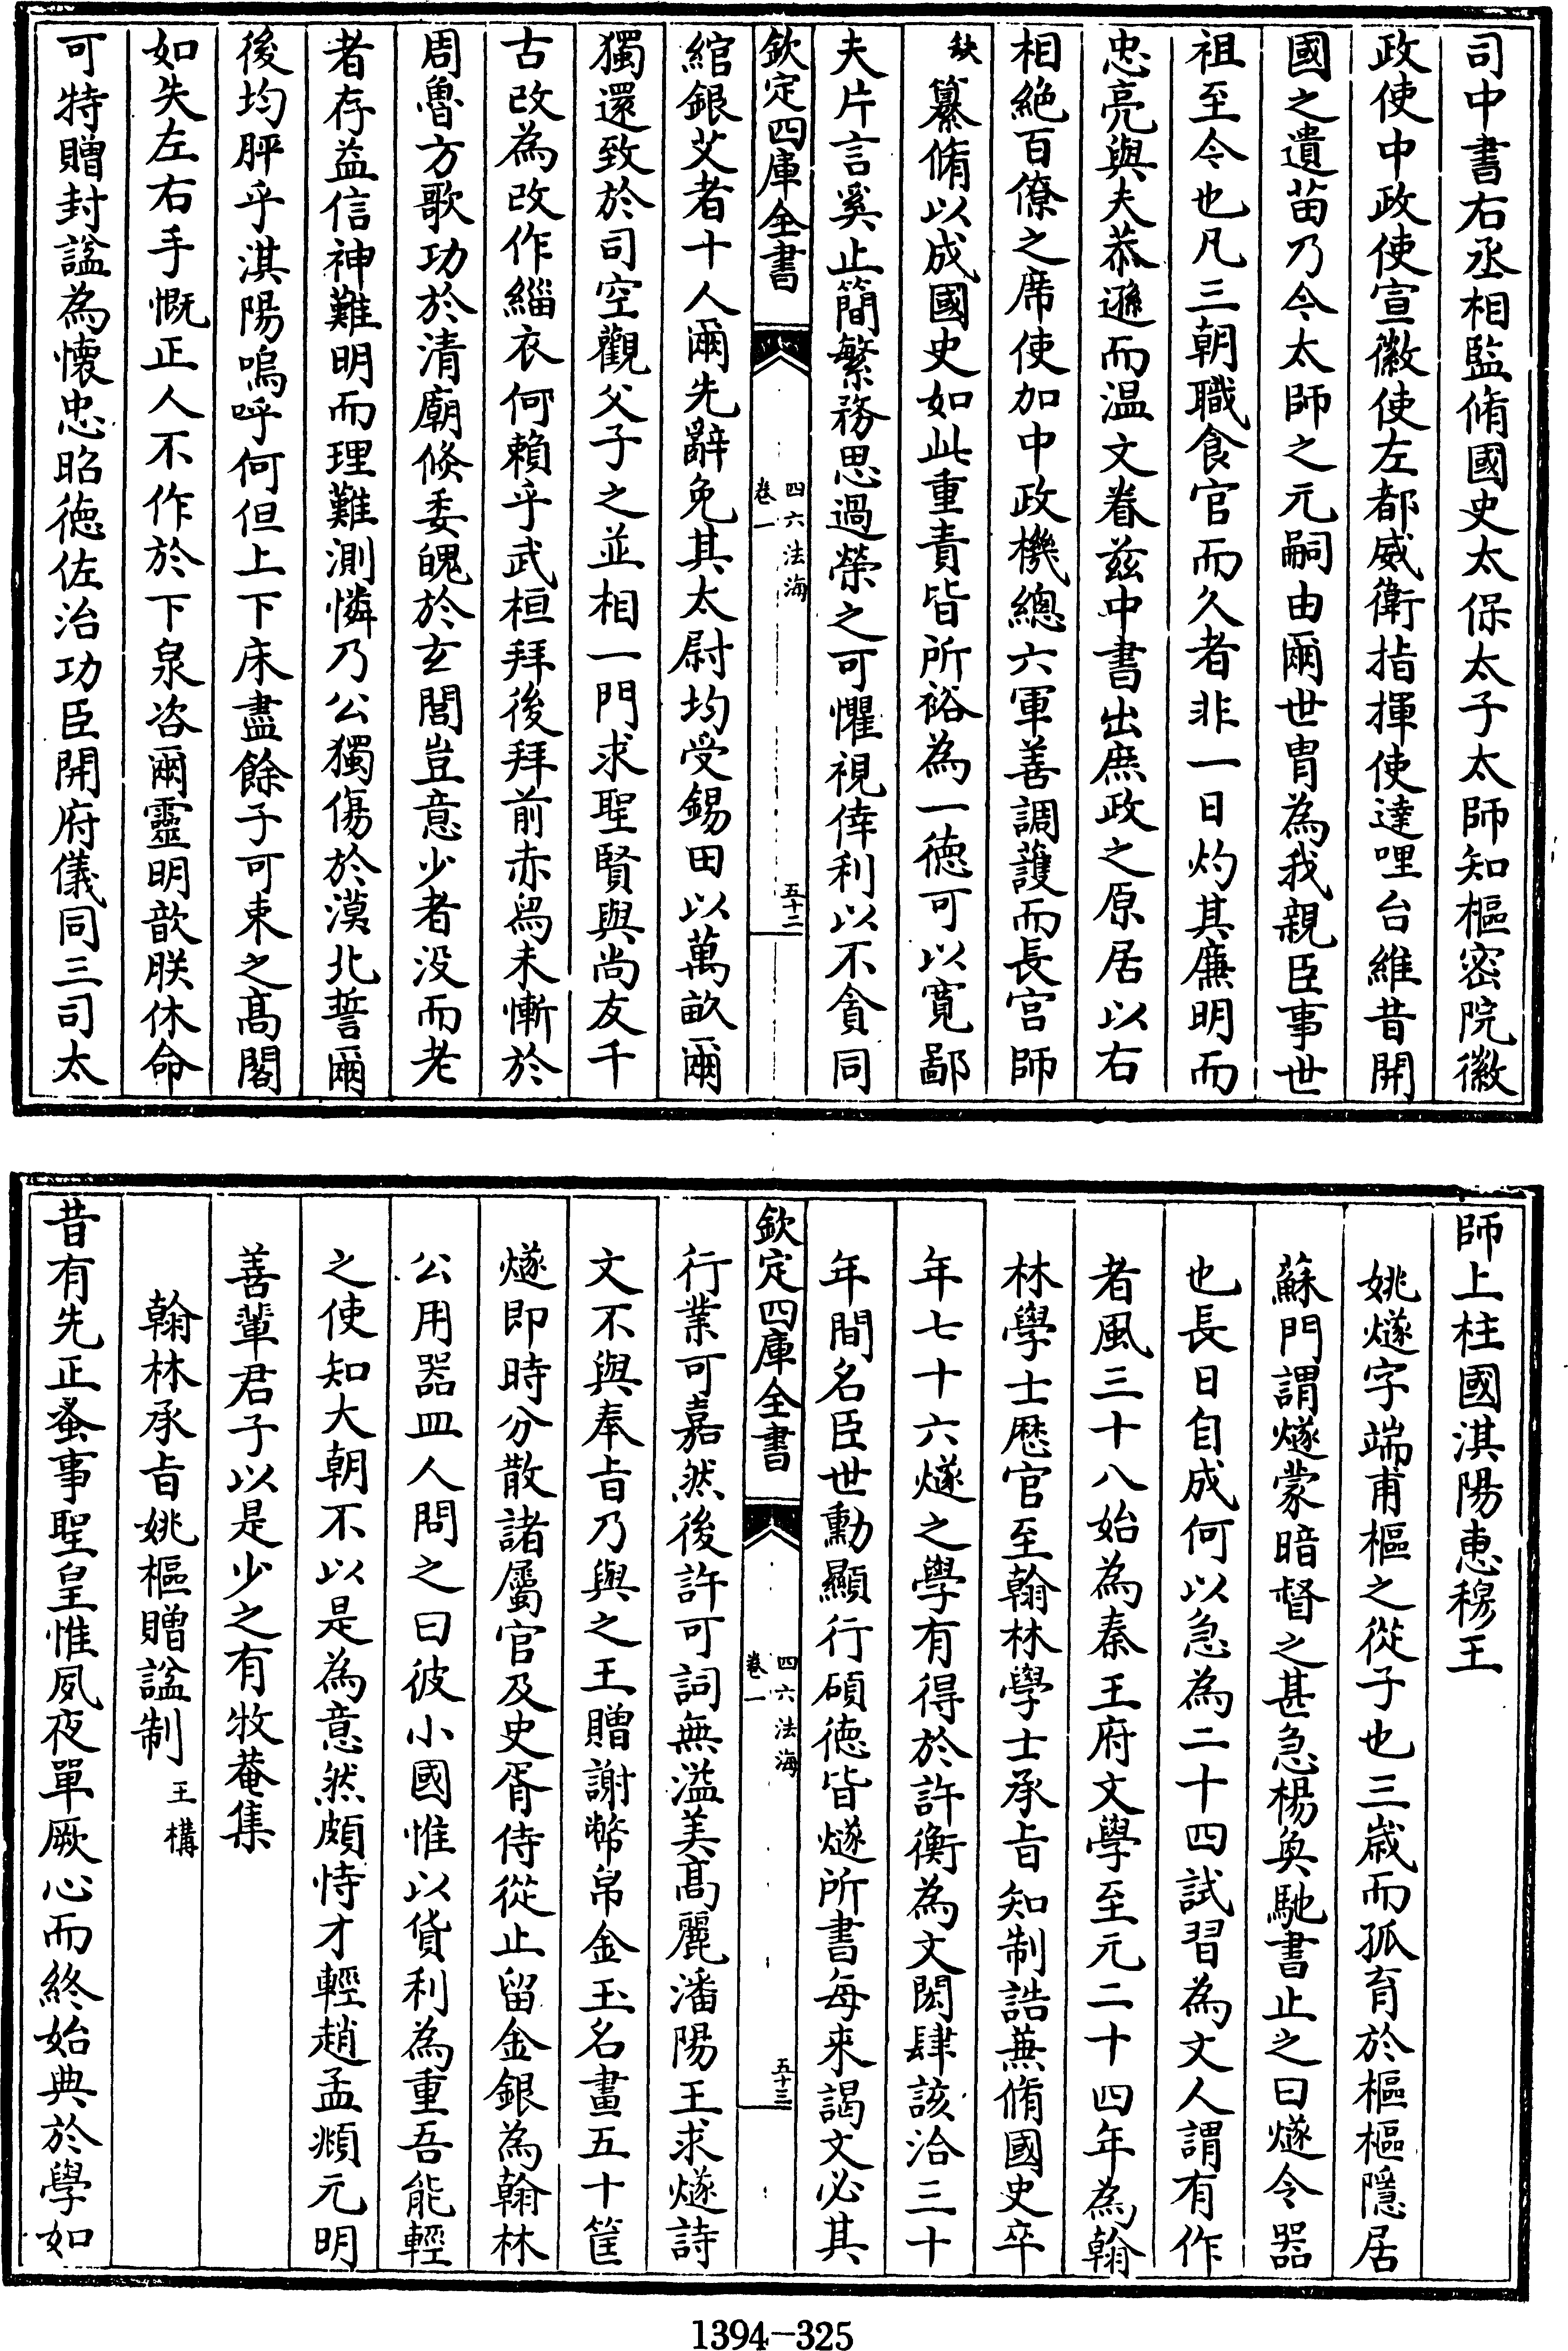 司中書右丞相監脩國史太保太子太師知樞密院徽
政使中政使宣徽使左都威衛指揮使達哩台維昔開
國之遺苗乃今太師之元嗣由爾世胄為我親臣事世
祖至今也凡三朝職食官而久者非一日灼其廉明而
忠亮與夫恭遜而温文眷兹中書出庶政之原居以右
相絶百僚之席使加中政機總六軍善調護而長宫師
缺纂脩以成國史如此重責皆所裕為一徳可以寛鄙
夫片言奚止簡繁務思過榮之可懼視倖利以不貪同
欽定四庫全書
四六法海
卷一
五十二
綰銀艾者十人爾先辭免其太尉均受錫田以萬畝爾
獨還致於司空觀父子之並相一門求聖賢與尚友千
古改為改作緇衣何賴乎武桓拜後拜前赤舄未慚於
周魯方歌功於清廟倏委魄於玄閤豈意少者没而老
者存益信神難明而理難測憐乃公獨傷於漠北誓爾
後均胙乎淇陽嗚呼何但上下床盡餘子可束之髙閣
如失左右手慨正人不作於下泉咨爾靈明歆朕休命
可特贈封諡為懐忠昭徳佐治功臣開府儀同三司太
師上柱國淇陽恵穆王
姚燧字端甫樞之從子也三嵗而孤育於樞樞隱居
蘇門謂燧蒙暗督之甚急楊奐馳書止之曰燧令器
也長日自成何以急為二十四試習為文人謂有作
者風三十八始為秦王府文學至元二十四年為翰
林學士歴官至翰林學士承旨知制誥兼脩國史卒
年七十六燧之學有得於許衡為文閎肆該洽三十
年間名臣世勳顯行碩徳皆燧所書每来謁文必其
欽定四庫全書
四六法海
卷一
五十三
行業可嘉然後許可詞無溢美髙麗瀋陽王求燧詩
文不與奉旨乃與之王贈謝幣帛金玉名畫五十筐
燧即時分散諸屬官及史胥侍從止留金銀為翰林
公用器皿人問之曰彼小國惟以貨利為重吾能輕
之使知大朝不以是為意然頗恃才輕趙孟頫元明
善輩君子以是少之有牧菴集
翰林承旨姚樞贈諡制 王構
昔有先正蚤事聖皇惟夙夜單厥心而終始典於學如
1394-325